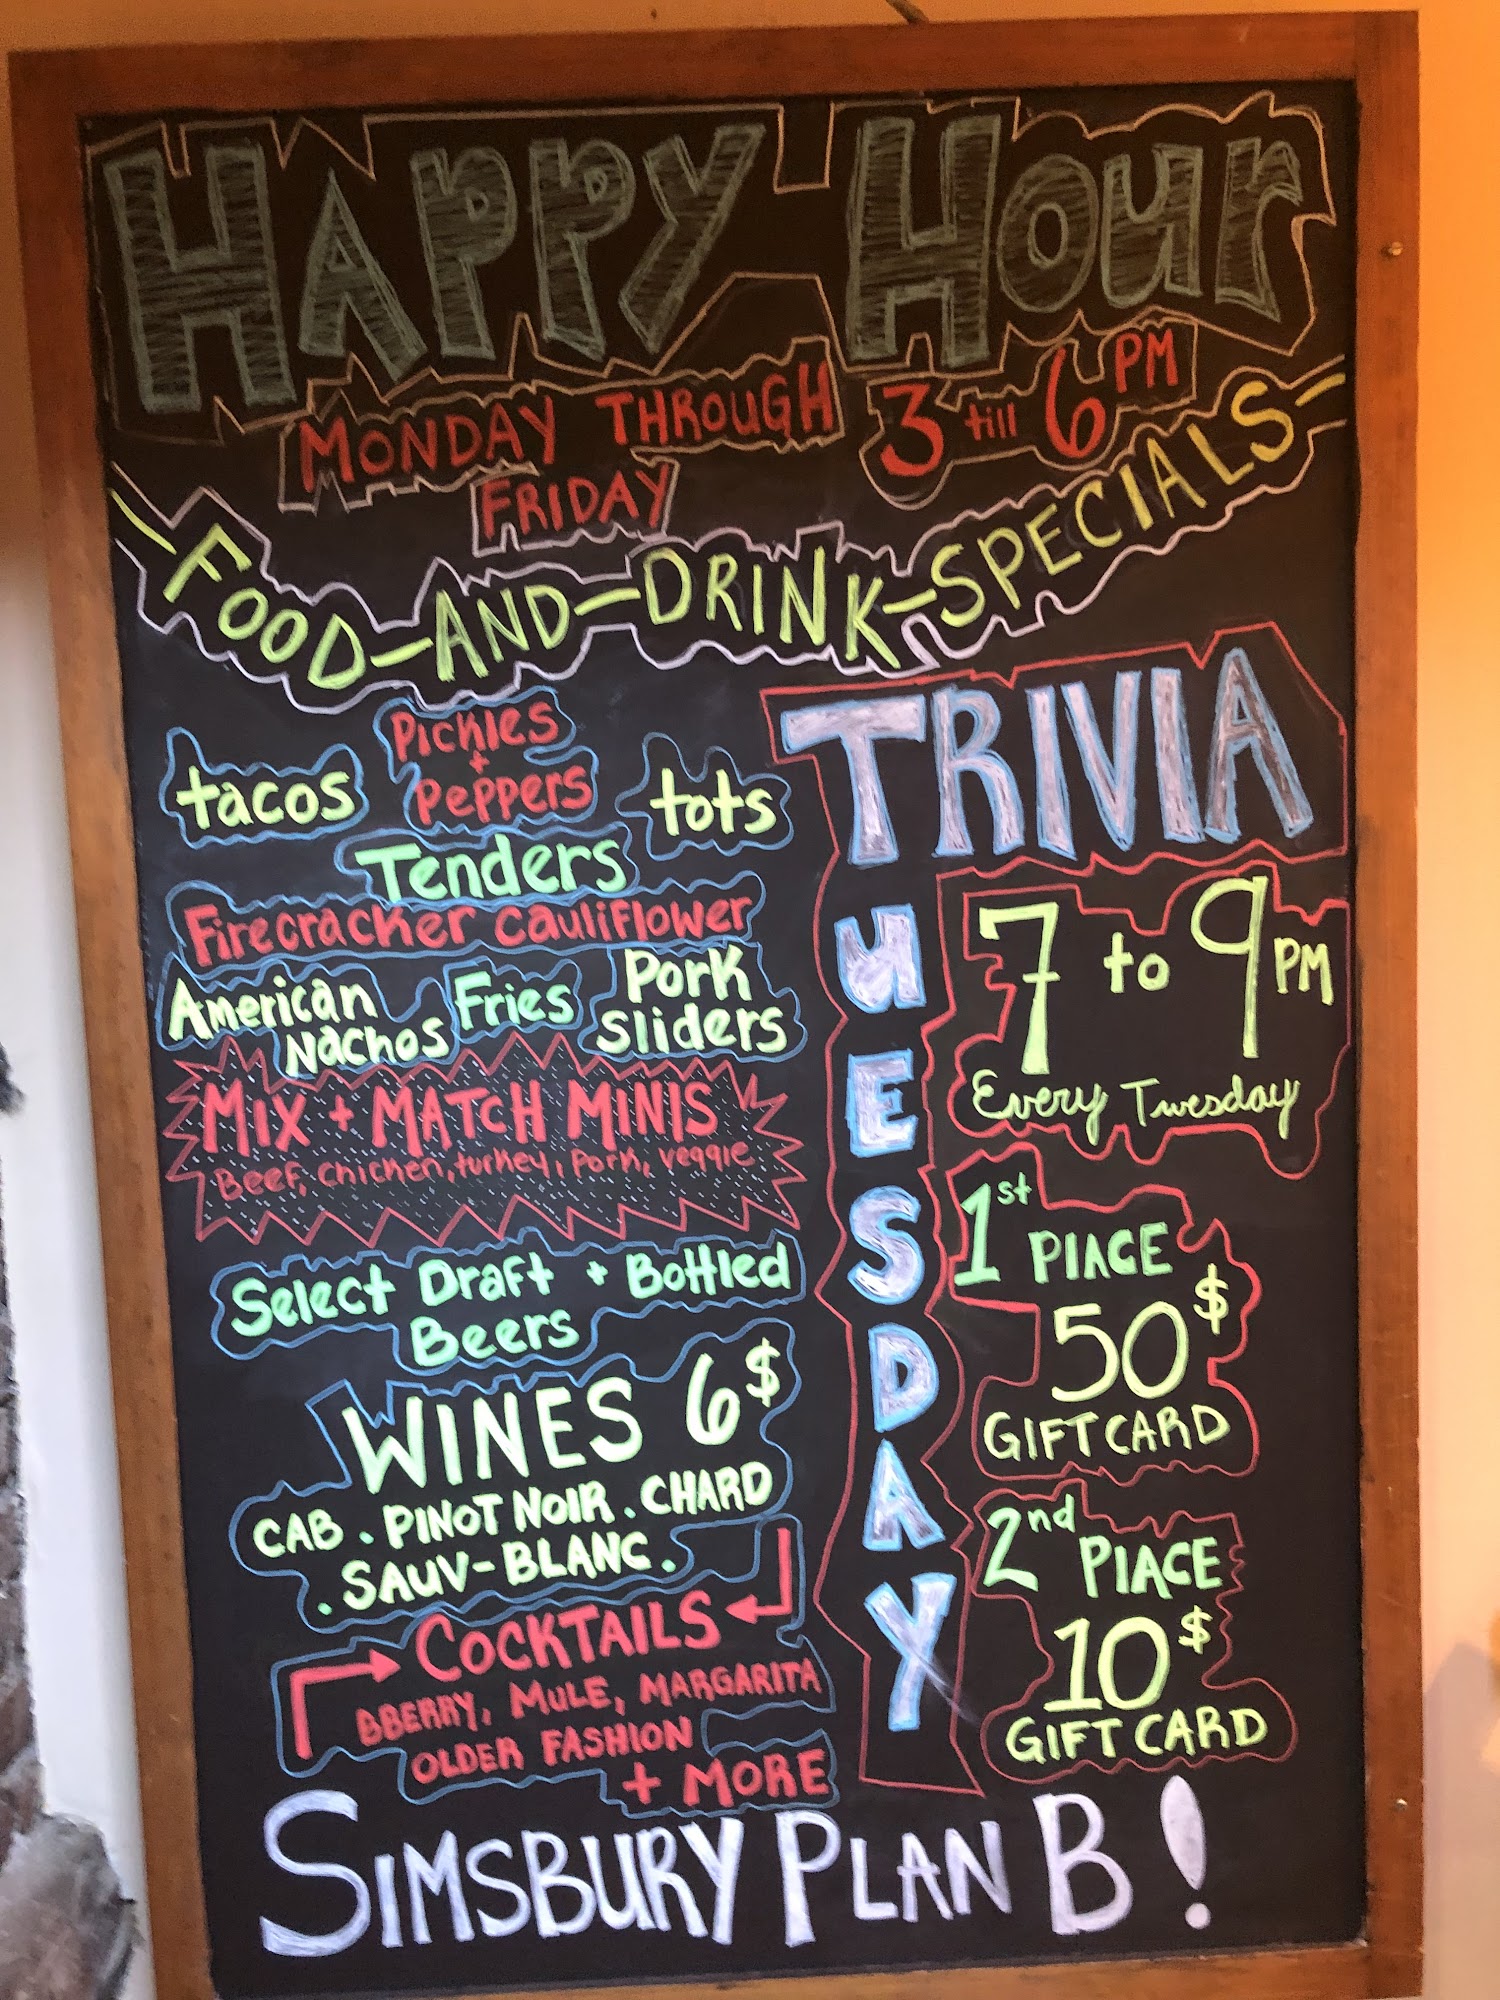 HAPPY HOUR
MONDAY THROUGH
FRIDAY
3 till 6 PM
FOOD-AND-DRINK-SPECIALS
tacos
Pickles
+
Peppers
tots
Tenders
Firecracker Cauliflower
American
Nachos
Fries
Pork
sliders
MIX + MATCH MINIS
Beef, chicken, turkey, Pork, veggie
Select Draft + Bottled
Beers
WINES 6$
CAB . PINOT NOIR . CHARD
. SAUV-BLANC .
COCKTAILS
BBERRY, MULE, MARGARITA
OLDER FASHION
+ MORE
TRIVIA
TUESDAY
7 to 9 PM
Every Tuesday
1st
PlACE
50$
GIFT CARD
2nd
PlACE
10$
GIFT CARD
SIMSBURY PLAN B!